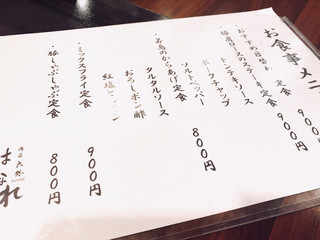 お食事メニ
・おすすめ日替わり定食 900円
・豚肩ロースのステーキ定食 900円
トンテキソース
ポークチャップ
ソルトペッパー 800円
・若鳥のからあげ定食
タルタルソース
おろしポン酢
・ミックスフライ定食 900円
・豚しゃぶしゃぶ定食 800円
はなれ